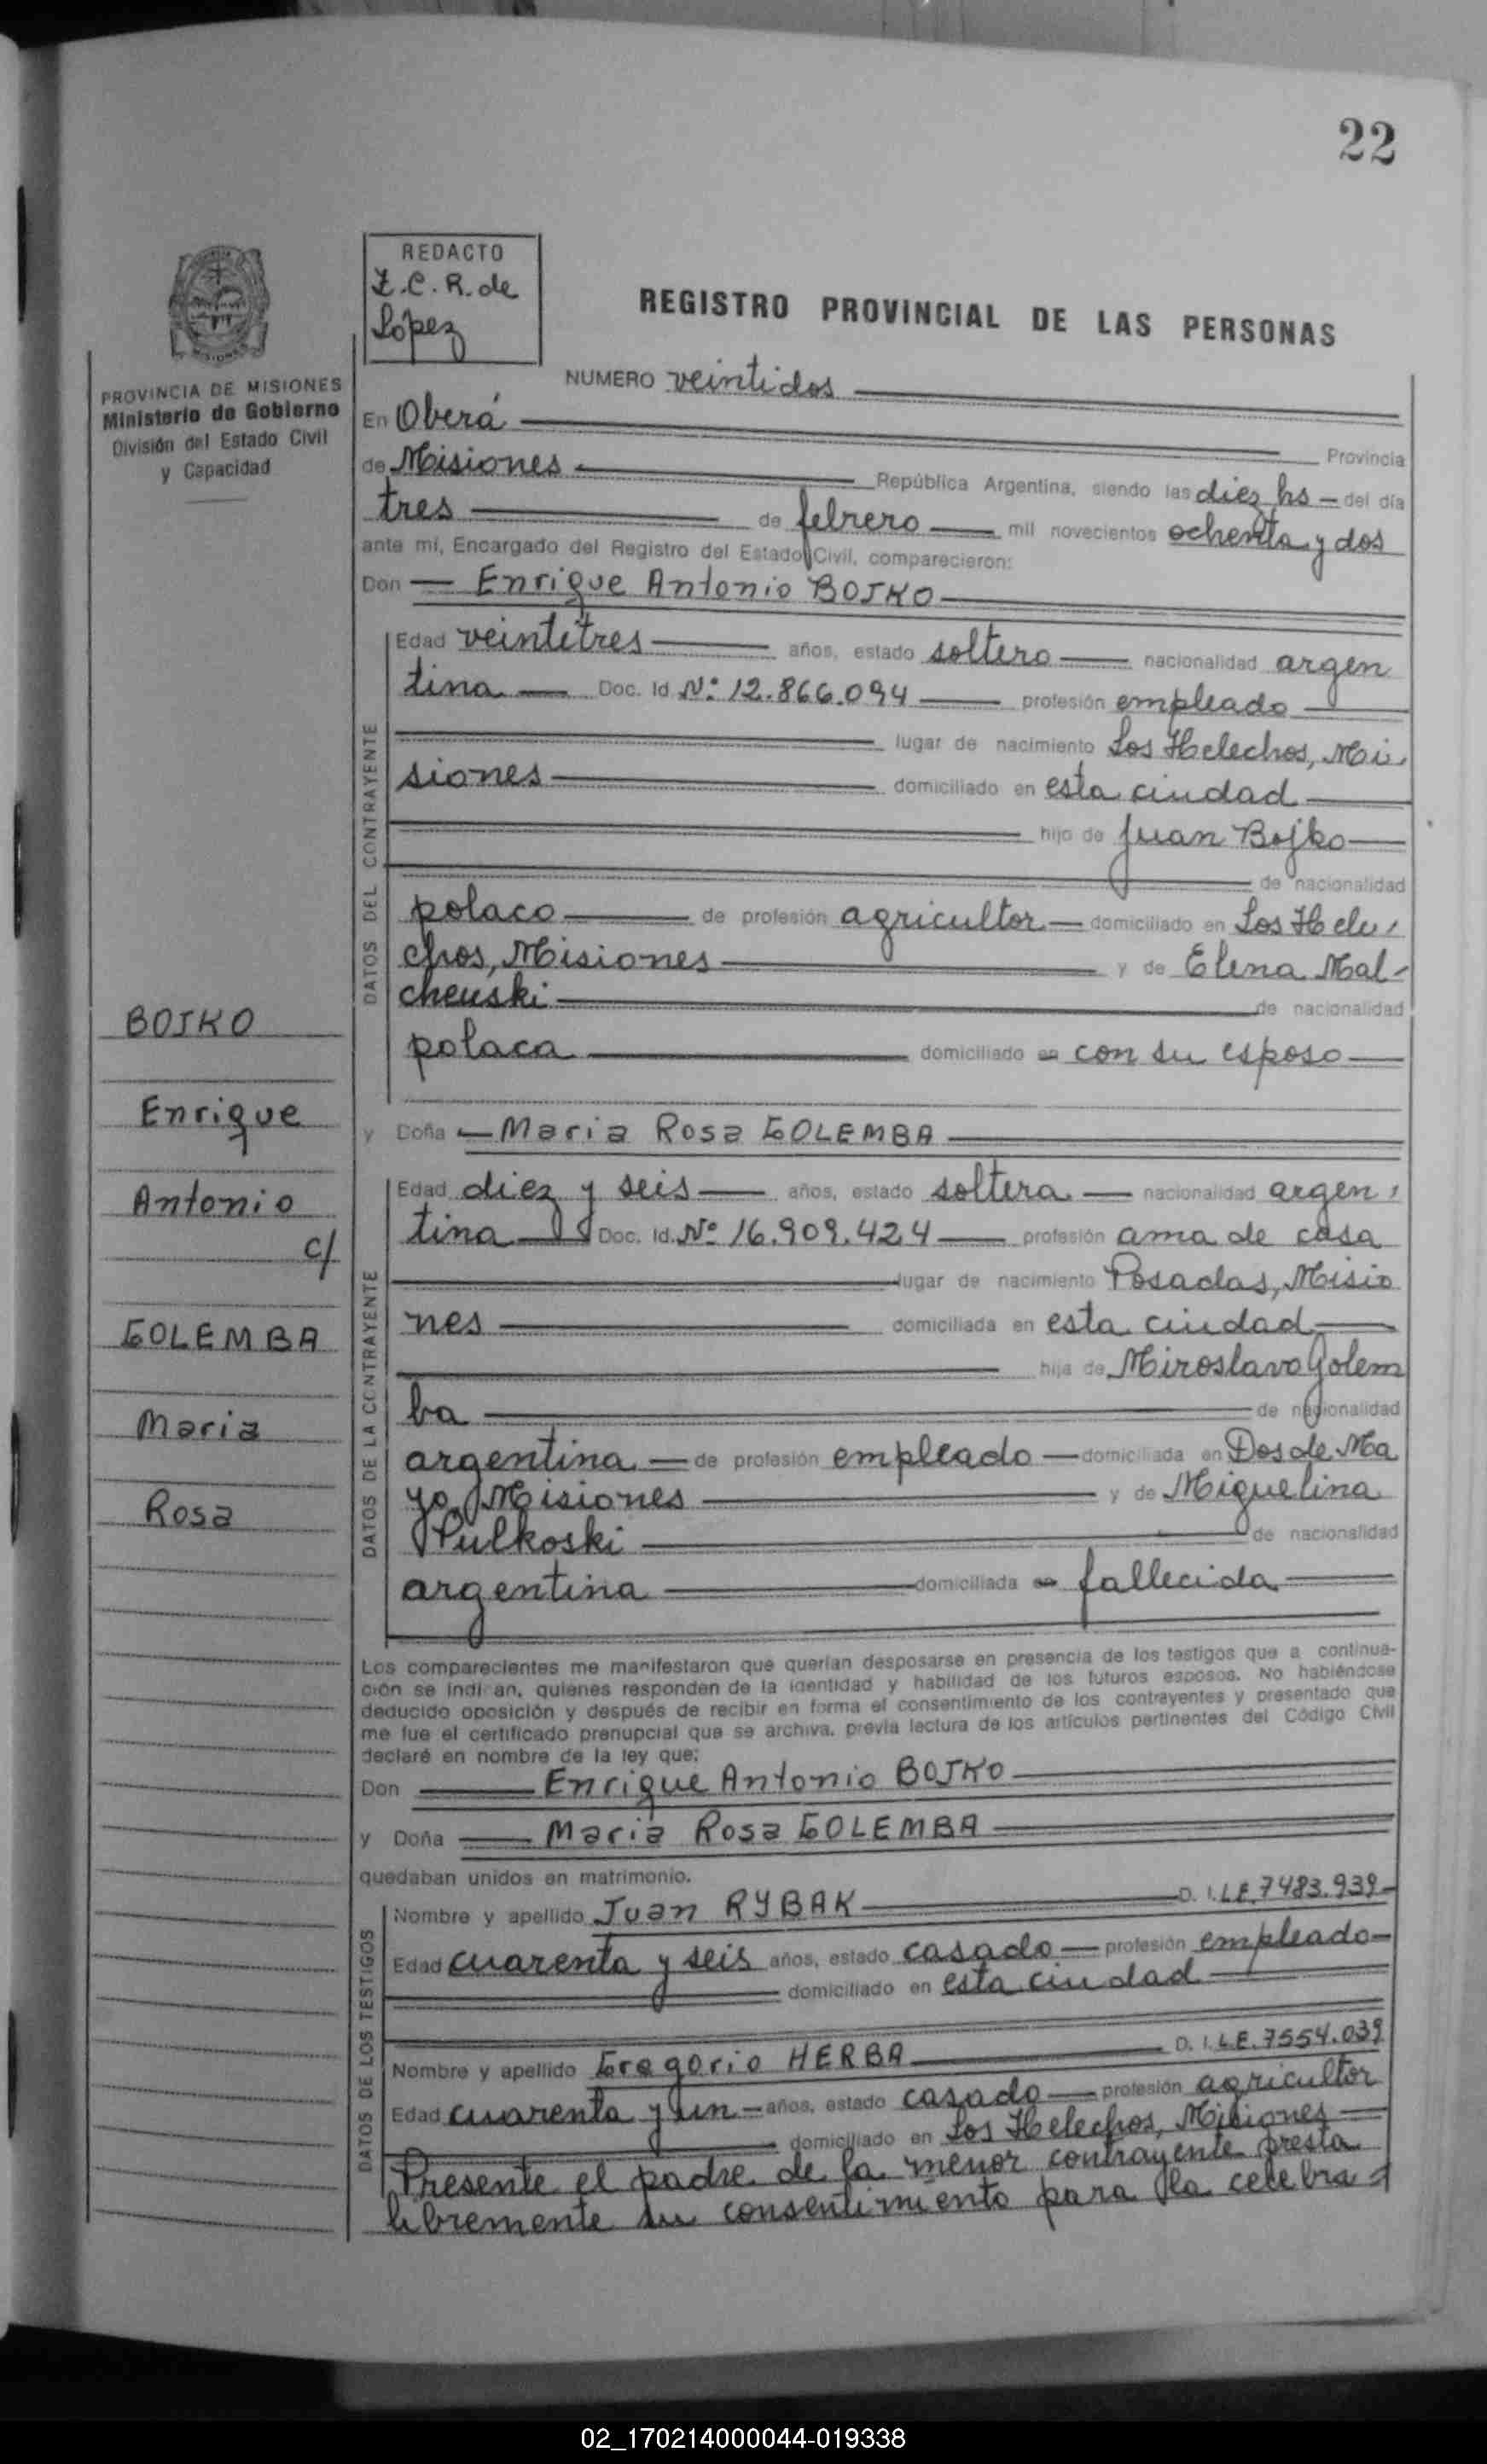 22
REDACTO
Z.C.R. de
López
REGISTRO PROVINCIAL DE LAS PERSONAS
PROVINCIA DE MISIONES
Ministerio de Gobierno
División del Estado Civil
y Capacidad
NUMERO veintidos
En Oberá
Provincia
de Misiones República Argentina, siendo las diez hs del día
tres de febrero mil novecientos ochenta y dos
ante mí, Encargado del Registro del Estado Civil, comparecieron:
Don Enrique Antonio BOJKO
DATOS DEL CONTRAYENTE
Edad veintitres años, estado soltero nacionalidad argen
tina Doc. Id Nº 12.866.094 profesión empleado
lugar de nacimiento Los Helechos, Mi
siones domiciliado en esta ciudad
hijo de Juan Bojko
de nacionalidad
polaco de profesión agricultor domiciliado en Los Hele
chos, Misiones y de Elena Mal-
cheuski de nacionalidad
polaca domiciliado en con su esposo
BOJKO
Enrique
Antonio
c/
GOLEMBA
Maria
Rosa
y Doña Maria Rosa GOLEMBA
DATOS DE LA CONTRAYENTE
Edad diez y seis años, estado soltera nacionalidad argen
tina Doc. Id. Nº 16.909.424 profesión ama de casa
lugar de nacimiento Posadas, Misio
nes domiciliada en esta ciudad
hija de Miroslavo Golem
ba de nacionalidad
argentina de profesión empleado domiciliada en Dos de Ma
yo, Misiones y de Miguelina
Pulkoski de nacionalidad
argentina domiciliada en fallecida
Los comparecientes me manifestaron que querían desposarse en presencia de los testigos que a continua-
ción se indi an, quienes responden de la identidad y habilidad de los futuros esposos. No habiéndose
deducido oposición y después de recibir en forma el consentimiento de los contrayentes y presentado que
me fue el certificado prenupcial que se archiva. previa lectura de los artículos pertinentes del Código Civil
declaré en nombre de la ley que:
Don Enrique Antonio BOJKO
y Doña Maria Rosa GOLEMBA
quedaban unidos en matrimonio.
DATOS DE LOS TESTIGOS
Nombre y apellido Juan RYBAK D. I. L.E. 7483.939
Edad cuarenta y seis años, estado casado profesión empleado
domiciliado en esta ciudad
Nombre y apellido Gregorio HERBA D. I. L.E. 7554.039
Edad cuarenta y un años, estado casado profesión agricultor
domiciliado en Los Helechos, Misiones
Presente el padre de la menor contrayente presta
libremente su consentimiento para la celebra
02_170214000044-019338